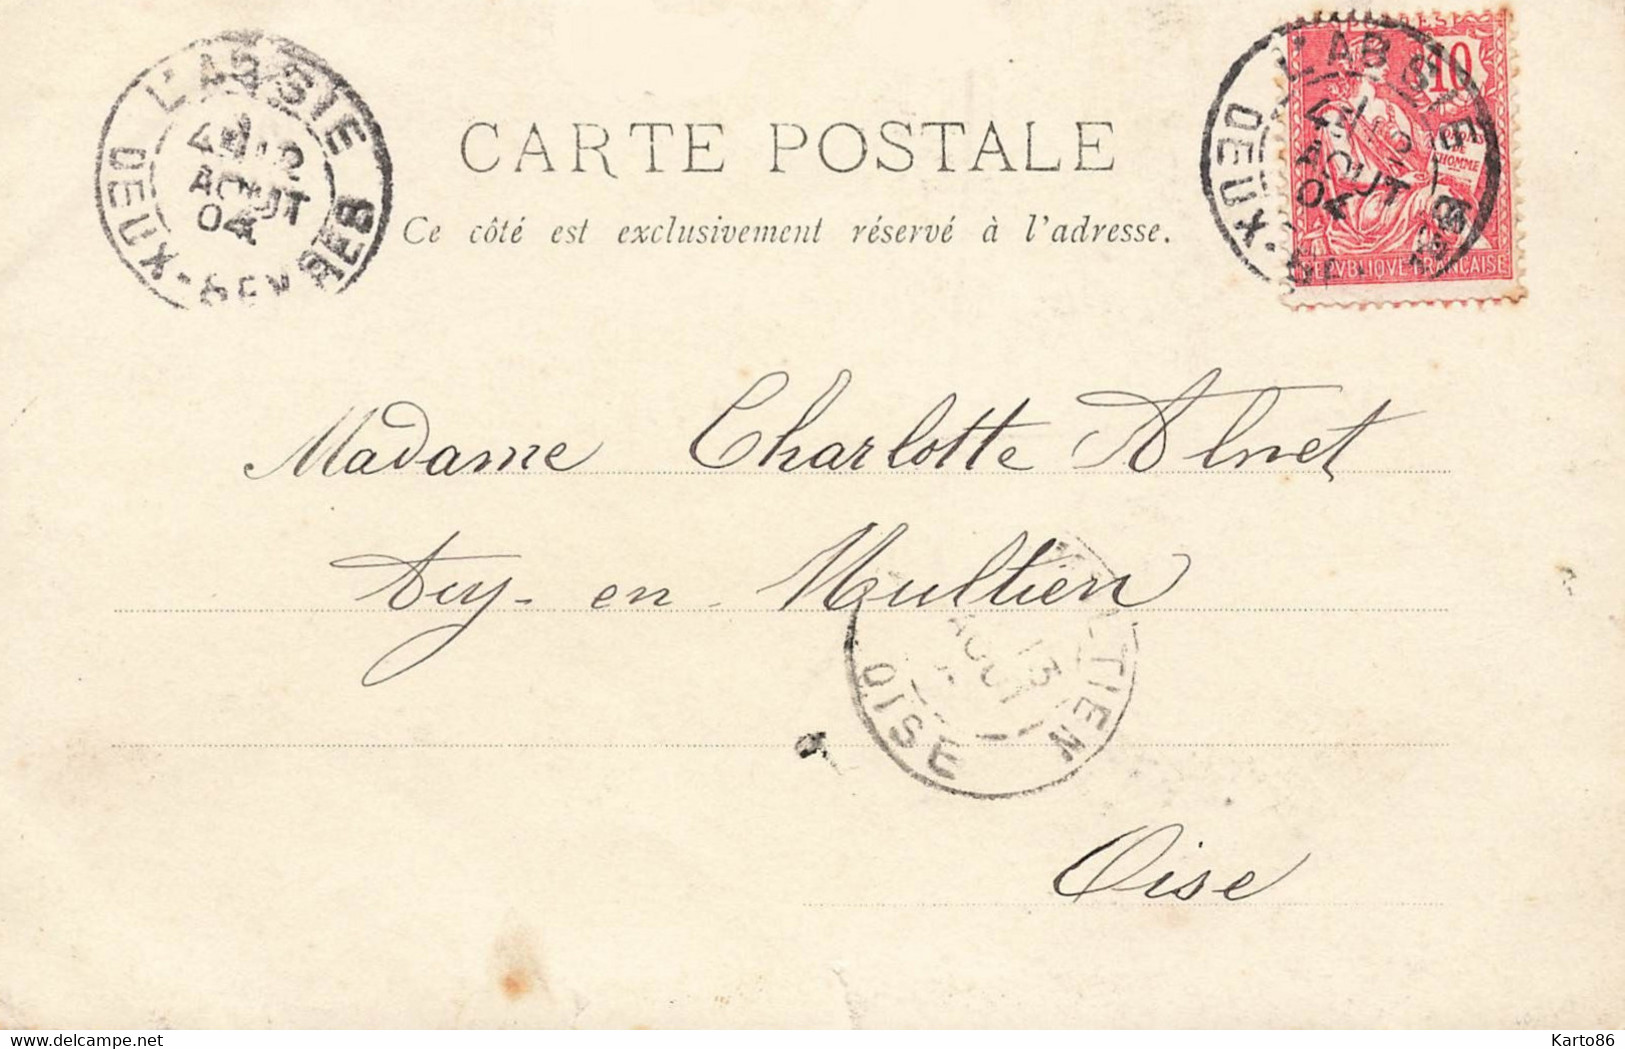 L'ABSIE
4E 12
AOUT
04
DEUX-SEVRES
CARTE POSTALE
Ce côté est exclusivement réservé à l'adresse.
10
L'ABSIE
12
AOUT
04
DEUX-
L'HOMME
REPVBLIQVE FRANCAISE
Madame Charlotte Alnet
Acy-en-Multien
13
AOUT
OISE
Oise
delcampe.net
Karto86